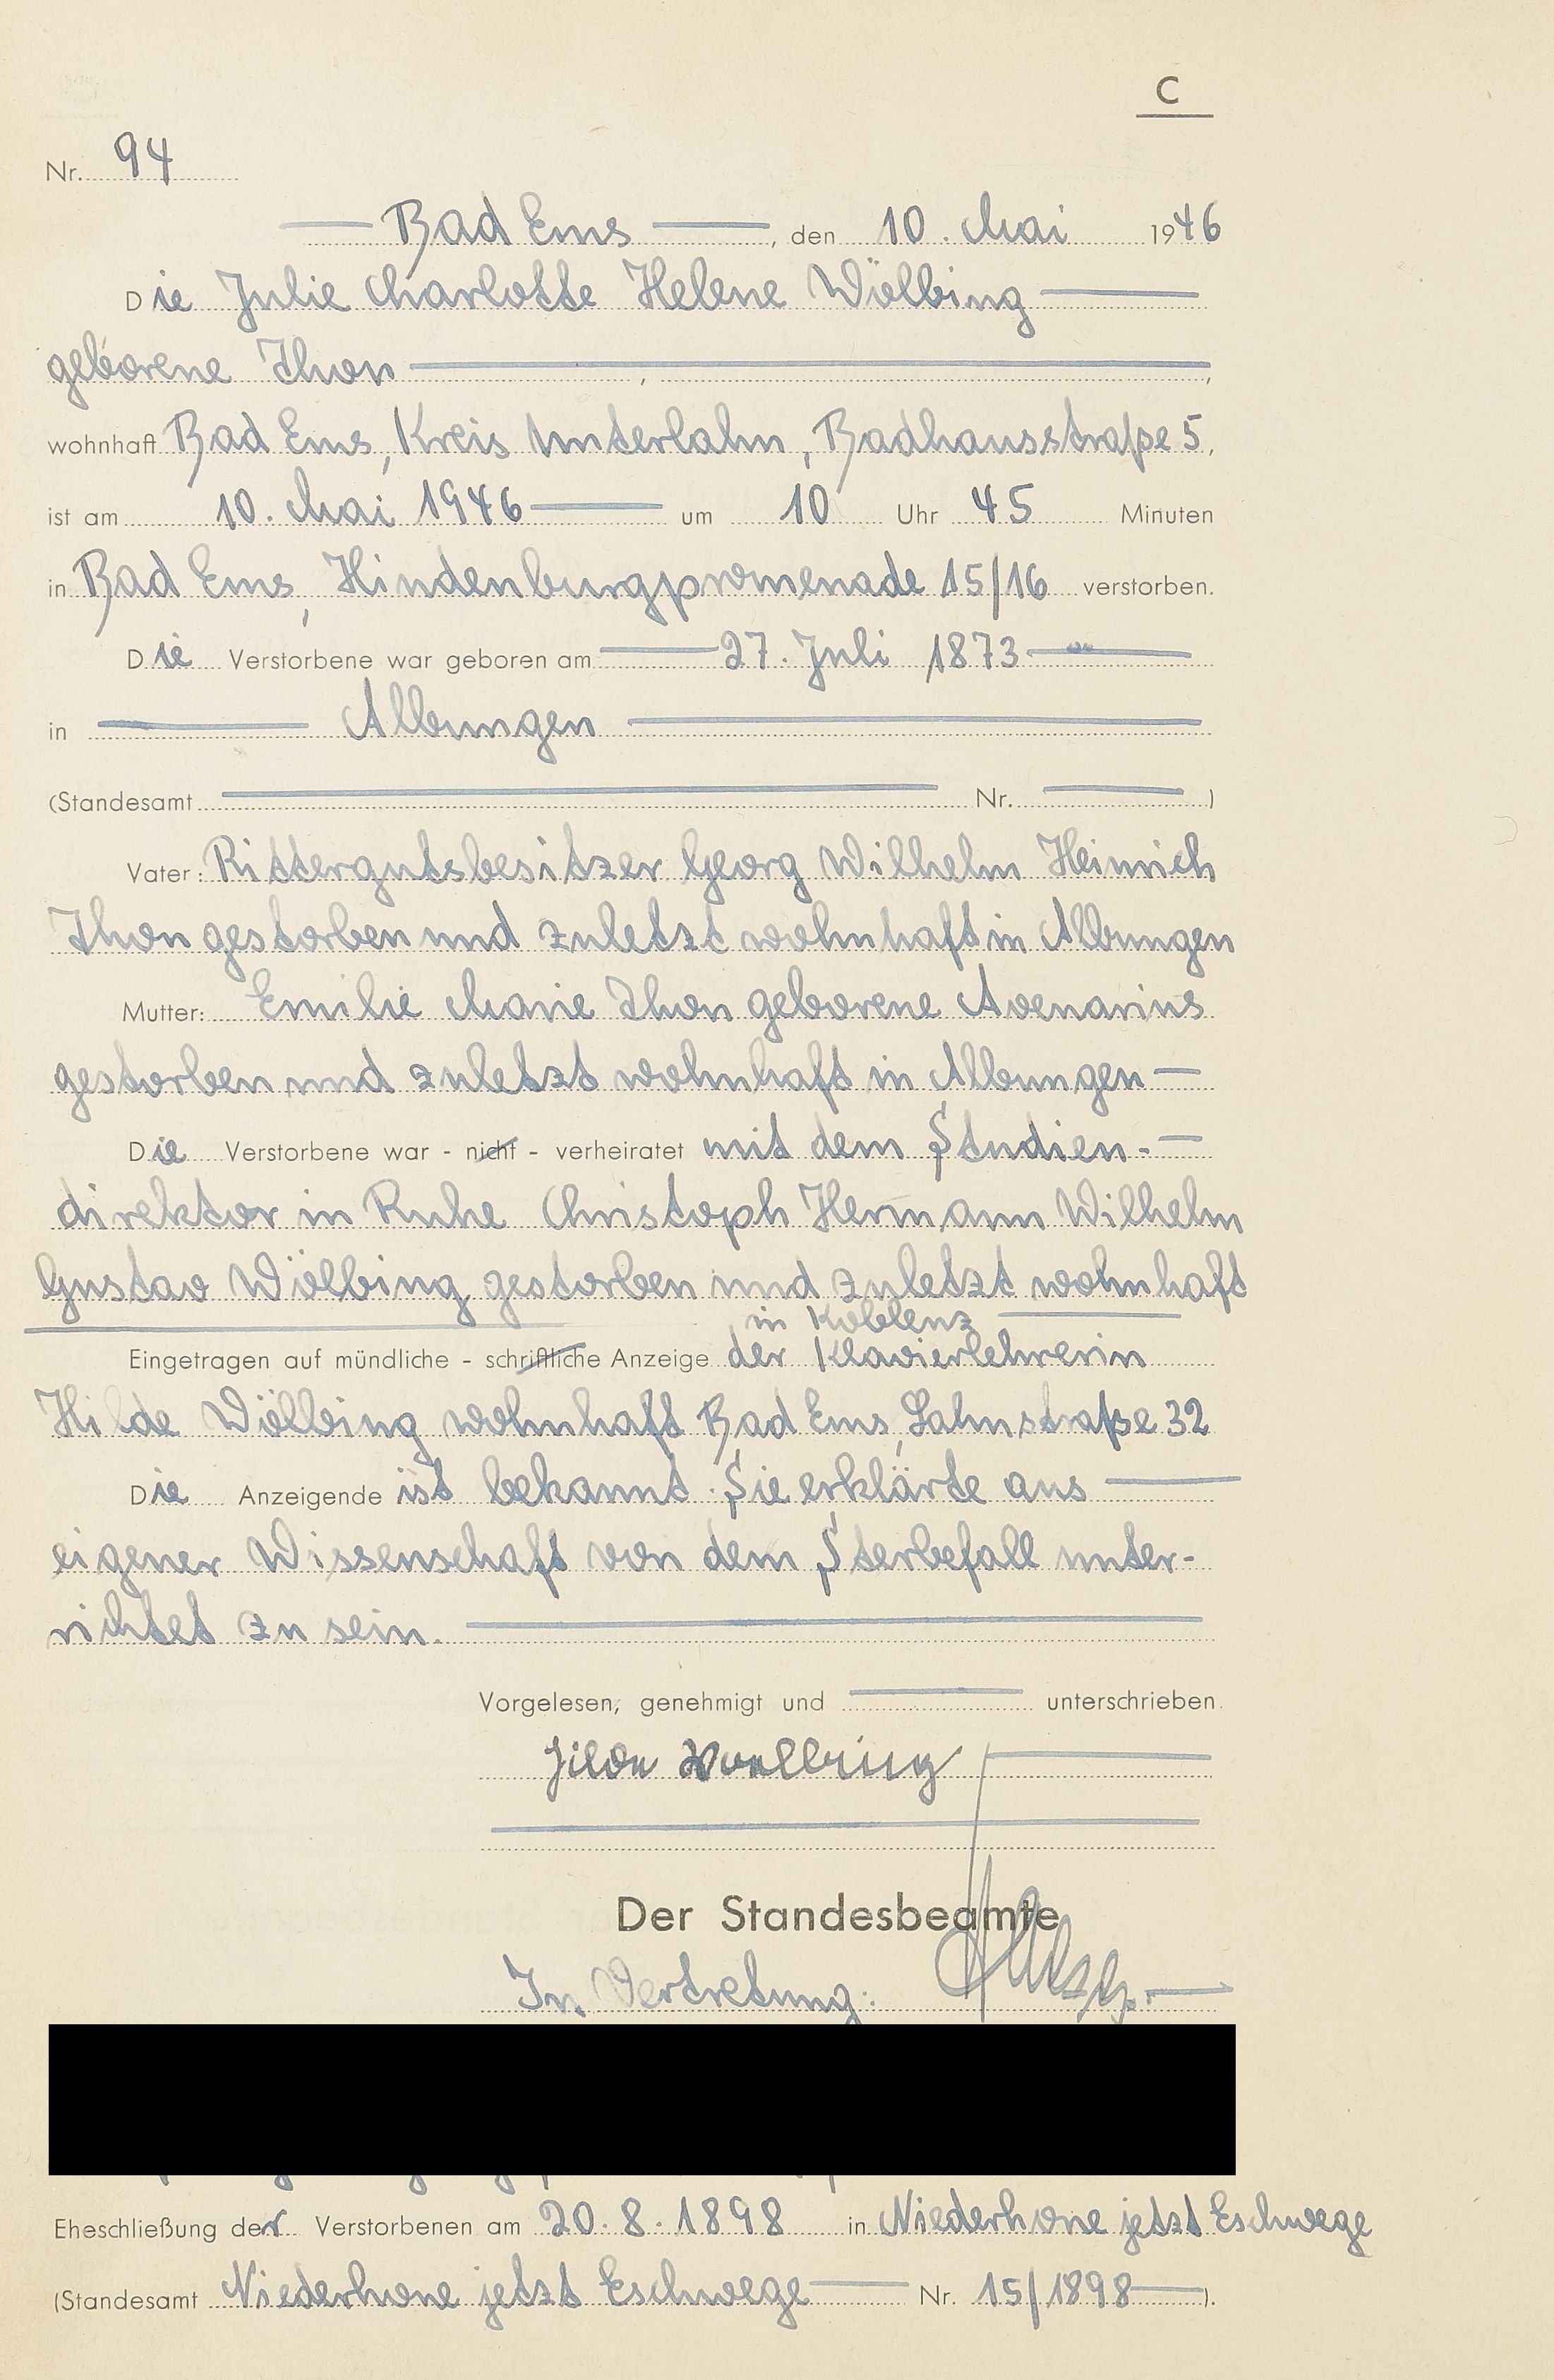 C
Nr. 94
Bad Ems, den 10. Mai 1946
Die Julie Charlotte Helene Wölbing
geborene Thon , ,
wohnhaft Bad Ems, Kreis Unterlahn, Badhausstraße 5,
ist am 10. Mai 1946 um 10 Uhr 45 Minuten
in Bad Ems, Hindenburgpromenade 15/16 verstorben.
Die Verstorbene war geboren am 27. Juli 1873
in Albungen
(Standesamt Nr. )
Vater: Rittergutsbesitzer Georg Wilhelm Heinrich
Thon gestorben und zuletzt wohnhaft in Albungen
Mutter: Emilie Marie Thon geborene Avenarius
gestorben und zuletzt wohnhaft in Albungen
Die Verstorbene war - nicht - verheiratet mit dem Studien-
direktor in Ruhe Christoph Hermann Wilhelm
Gustav Wölbing gestorben und zuletzt wohnhaft
in Koblenz
Eingetragen auf mündliche - schriftliche Anzeige der Klavierlehrerin
Hilde Wölbing wohnhaft Bad Ems, Lahnstraße 32
Die Anzeigende ist bekannt. Sie erklärte aus
eigener Wissenschaft von dem Sterbefall unter-
richtet zu sein.
Vorgelesen, genehmigt und unterschrieben.
Hilde Woelbing
Der Standesbeamte
In Vertretung:
Eheschließung der Verstorbenen am 20.8.1898 in Niederhone jetzt Eschwege
(Standesamt Niederhone jetzt Eschwege Nr. 15/1898).